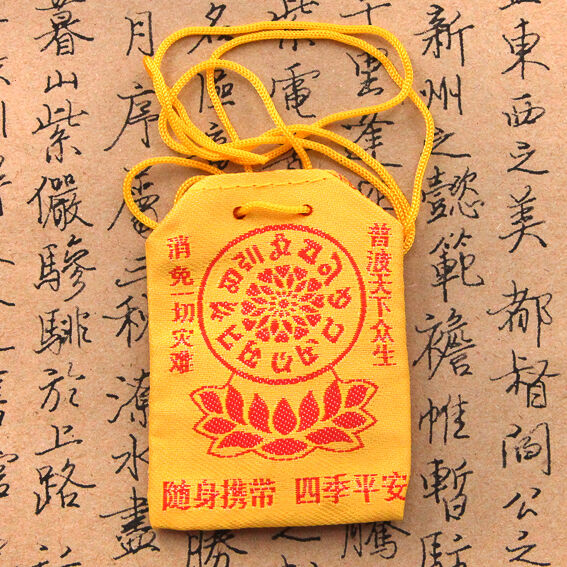 消免一切灾难
普渡天下众生
随身携带 四季平安
東西之美 都督閻公之
新州之懿範襜帷暫駐
千里逢
電
月序 三秋潦水盡
暮山紫儼驂騑於上路